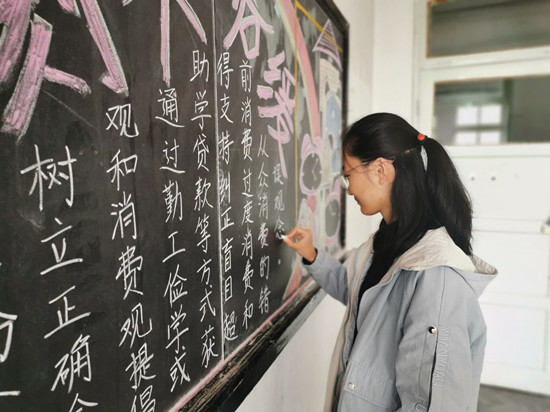 树立正确
观和消费观提倡
通过勤工俭学或
助学贷款等方式获
得支持纠正盲目超
前消费过度消费和
从众消费的错
误观念。